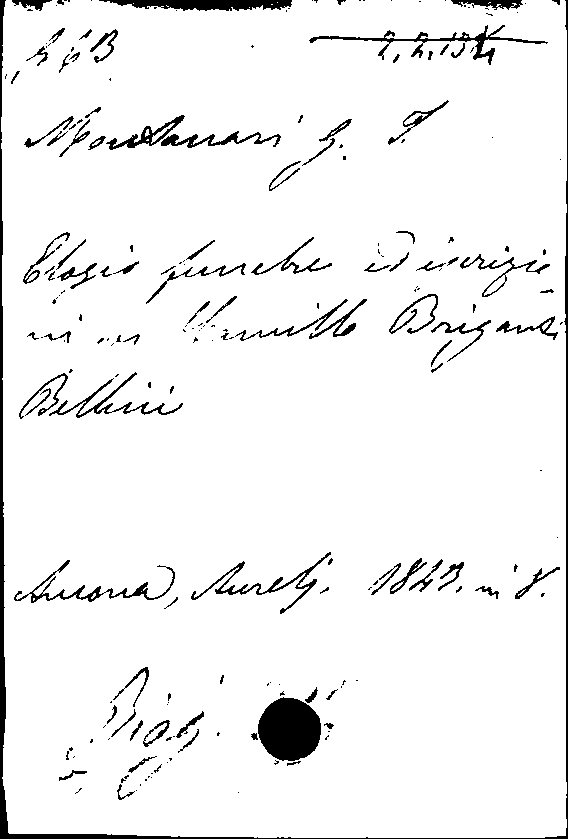 2.2.13
Montanari G. F.
Elogio funebre ed iscrizio-
ni Camillo Briganti
Bellini
Ancona, Aurelj. 1843. in 8.
Biog.